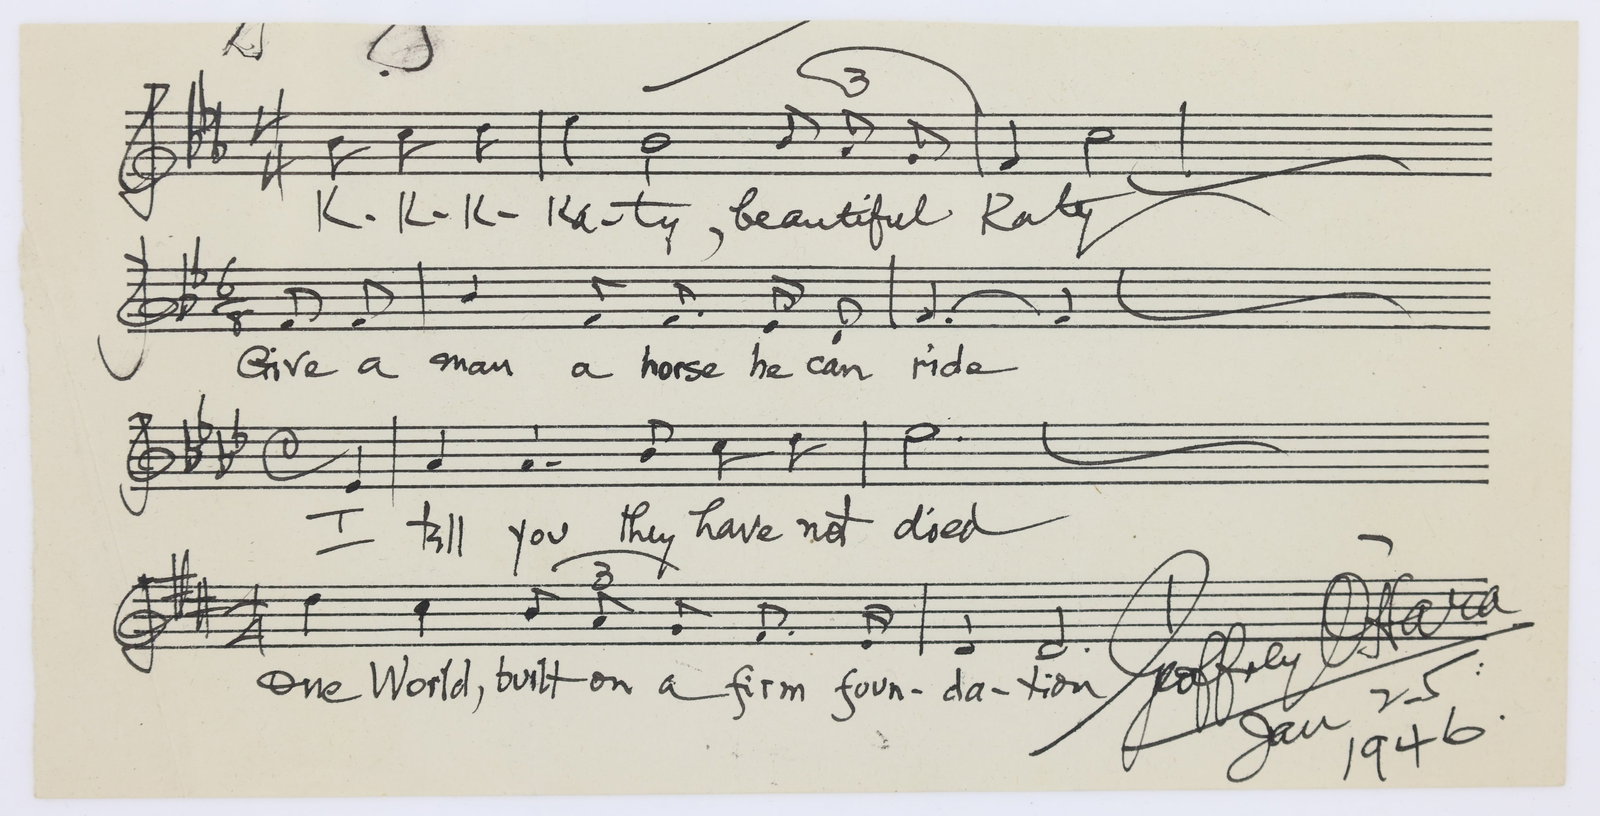 3
K-K-K-Ka-ty, beautiful Katy
6
8
Give a man a horse he can ride
I tell you they have not died
3
One World, built on a firm foun-da-tion
Geoffrey O'Hara
Jan 25
1946.